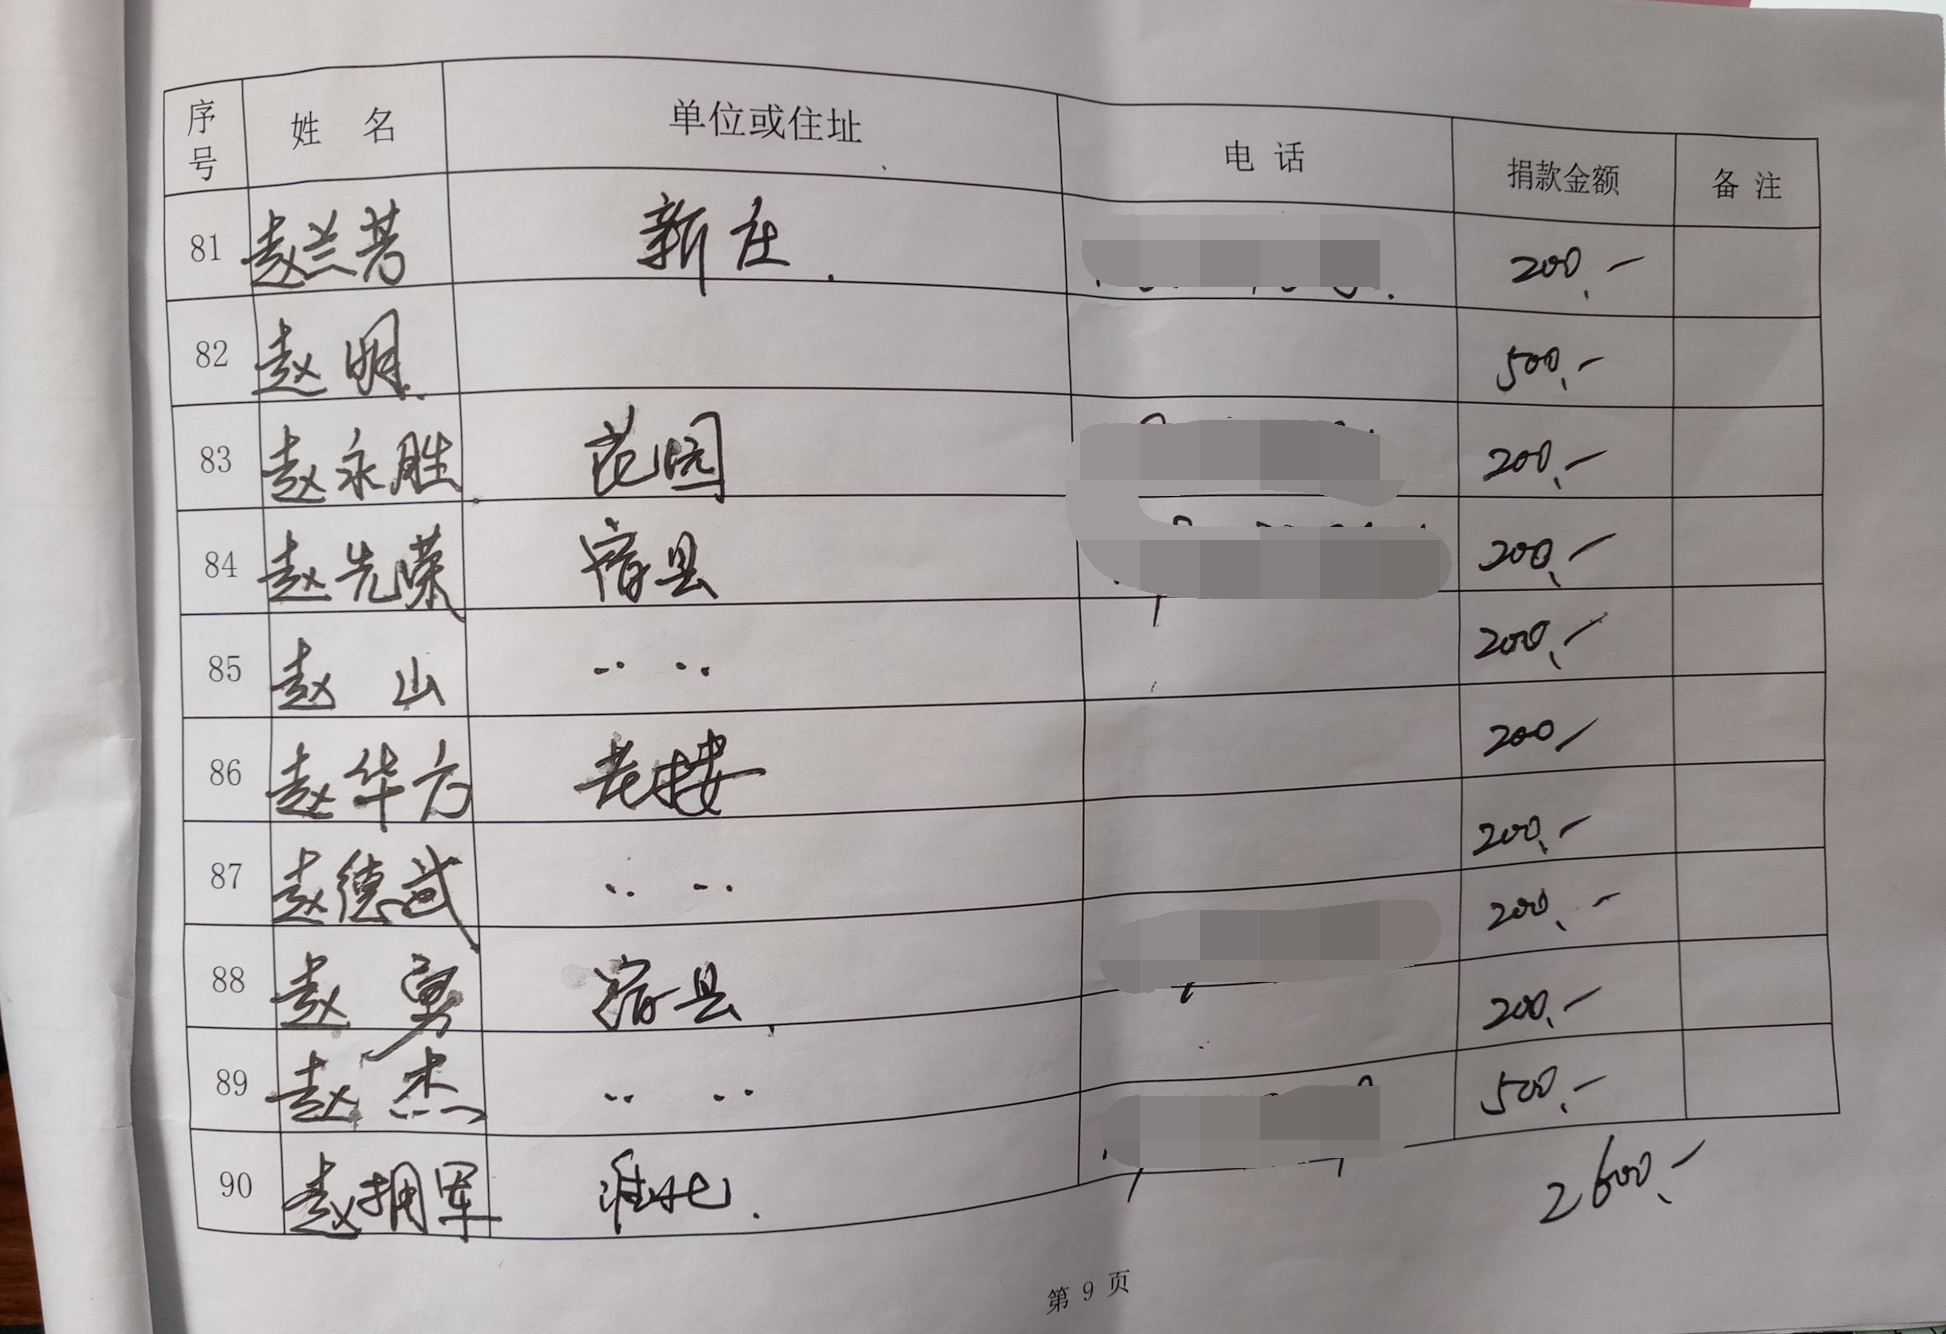 序号 姓名 单位或住址 电话 捐款金额 备注
81 赵兰芳 新庄. 200.-
82 赵明. 500.-
83 赵永胜 范园 200.-
84 赵先荣 宿县 200.-
85 赵山 ·· ·· 200.-
86 赵华方 老楼 200-
87 赵德武 ·· ·· 200.-
88 赵勇 宿县. 200.-
89 赵杰 ·· ·· 200.-
90 赵拥军 淮北. 500.-
2600.-
第 9 页